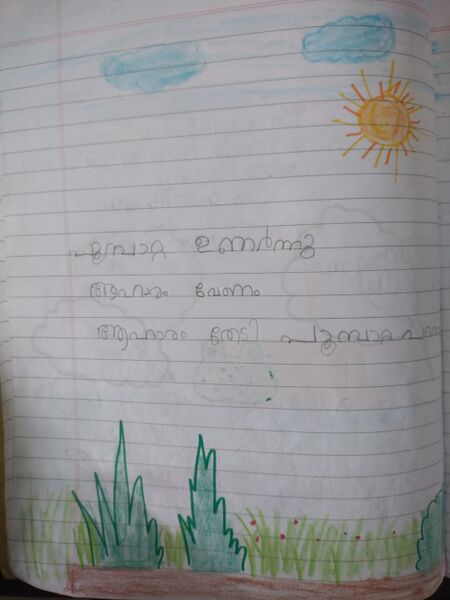 പൂമ്പാറ്റ ഉണർന്നു
ആഹാരം വേണം
ആഹാരം തേടി പൂമ്പാറ്റ